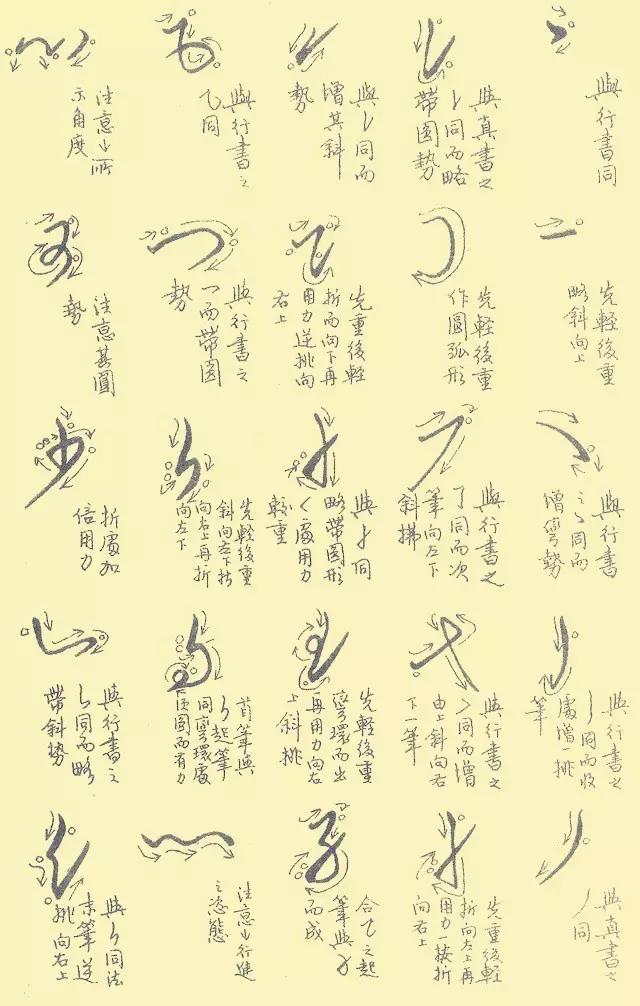 與行書同
與真書之
㇙同而略
帶圓勢
與㇙同而
增其斜
勢
與行書之
乙同
注意↓所
示角度
先輕後重
略斜向上
先輕後重
作圓弧形
先重後輕
折而向下再
用力逆挑向
右上
與行書之
乛而帶圓
勢
注意其圓
勢
與行書
之㇏同而
增彎勢
與行書之
了同而次
筆向左下
斜拂
與
同
略帶圓形
處用力
較重
先輕後重
斜向左下折
向右上再折
向左下
折處加
倍用力
與行書之
丿同而收
處增一挑
筆
與行書之
㇇同而增
由上斜向右
下一筆
先輕後重
彎環而出
再用力向右
上斜挑
首筆與
起筆
同彎環處
須圓而有力
與行書之
㇙同而略
帶斜勢
與真書之
丿同
先重後輕
折向左上再
用力一按折
向右上
合㇈之起
筆與
而成
注意↓行進
之姿態
與㇙同法
末筆逆
挑向右上